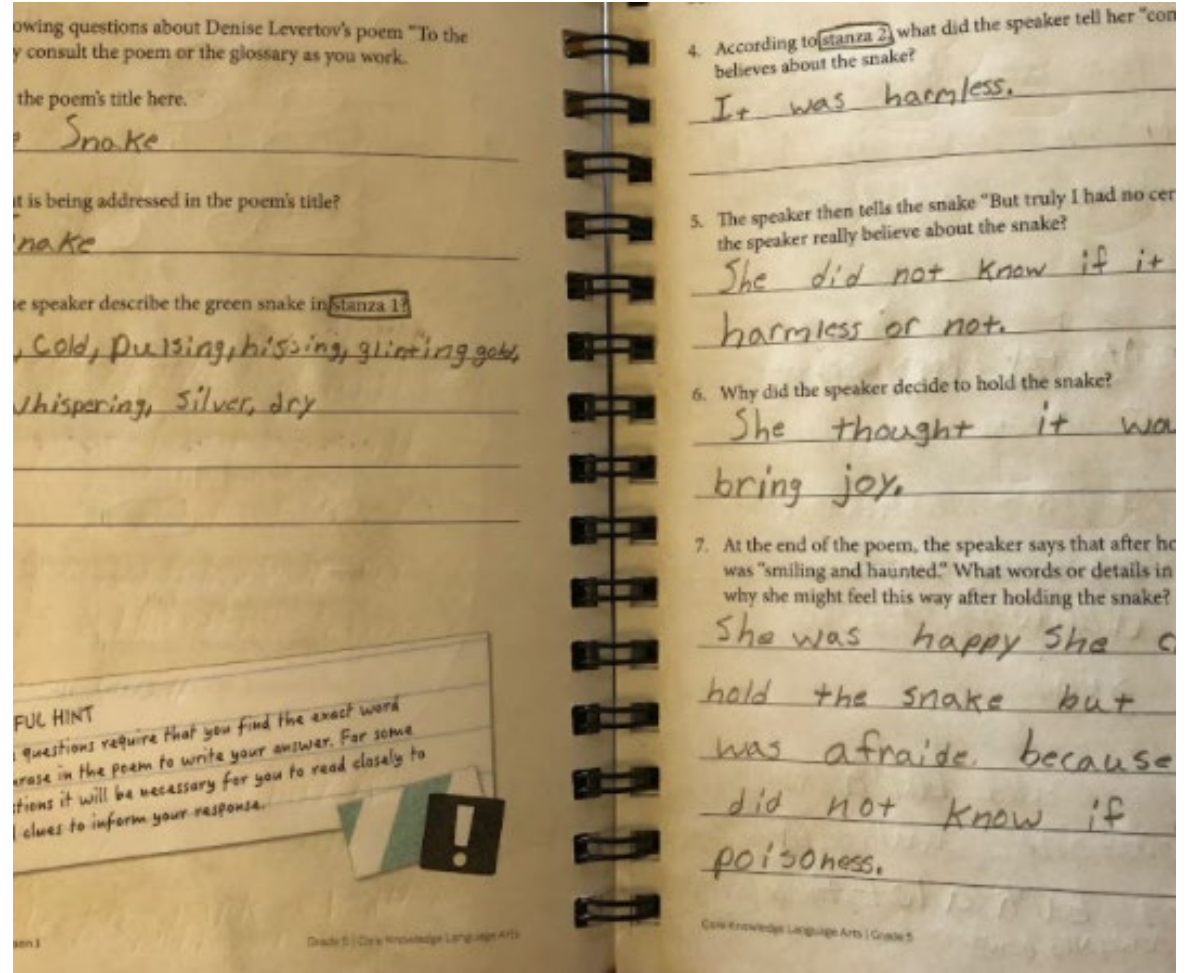 owing questions about Denise Levertov's poem "To the
y consult the poem or the glossary as you work.
the poem's title here.
e Snake
t is being addressed in the poem's title?
nake
e speaker describe the green snake in stanza 1?
, Cold, Pulsing, hissing, glinting gold,
whispering, Silver, dry
FUL HINT
questions require that you find the exact word
rase in the poem to write your answer. For some
tions it will be necessary for you to read closely to
clues to inform your response.
son 1
Grade 5 | Core Knowledge Language Arts
4. According to stanza 2, what did the speaker tell her "con
believes about the snake?
It was harmless.
5. The speaker then tells the snake "But truly I had no cer
the speaker really believe about the snake?
She did not know if it
harmless or not.
6. Why did the speaker decide to hold the snake?
She thought it wo
bring joy.
7. At the end of the poem, the speaker says that after ho
was "smiling and haunted." What words or details in
why she might feel this way after holding the snake?
She was happy She c
hold the snake but
was afraide. because
did not know if
poisoness.
Core Knowledge Language Arts | Grade 5